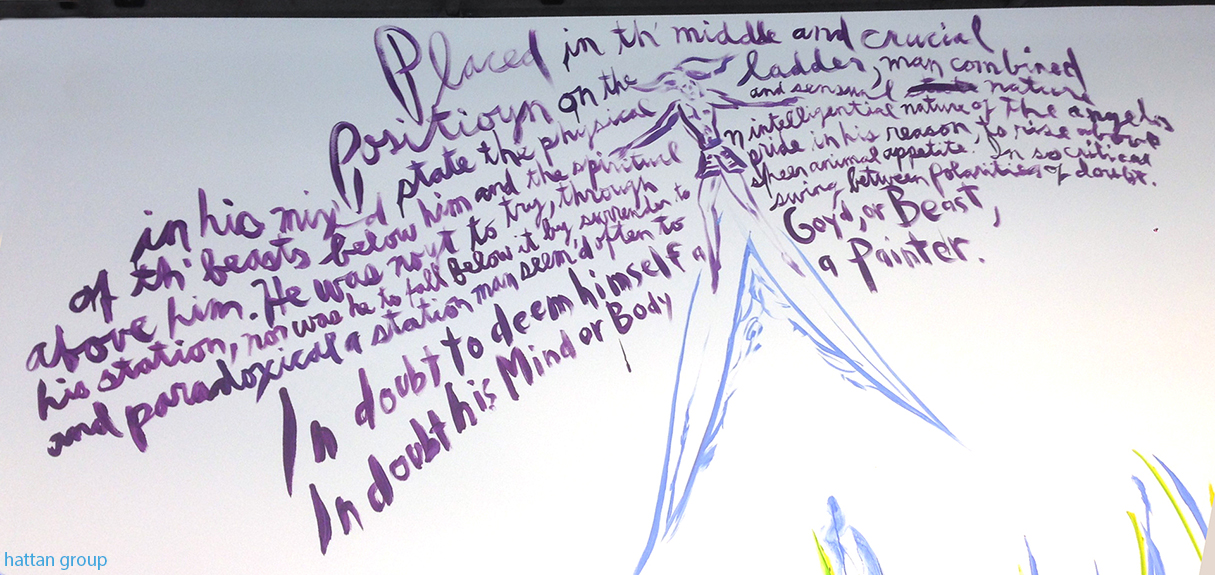 Placed in th' middle and crucial
Positioyn on the ladder, man combined
in his mixed state the physical and sensual nature
off th' beasts below him and the spiritual n intelligential nature of The angels
above him. He was noyt to try, through pride in his reason, to rise above
his station, nor was he to fall below it by surrender to speer animal appetite. In so critical
and paradoxical a station man seem'd often to swing between polarities of doubt.
In doubt to deem himself a Goy'd, or Beast,
In doubt his Mind or Body a Painter.
hattan group